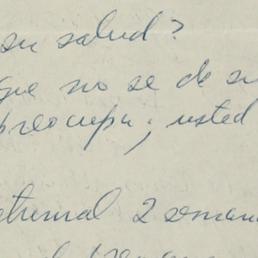 su salud?
que no se de su
preocupa; usted
2 semana